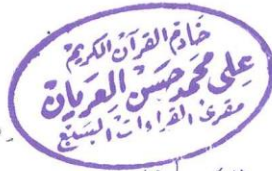 خادم القرآن الكريم
على محمد حسن العريان
مقرئ القراءات السبع